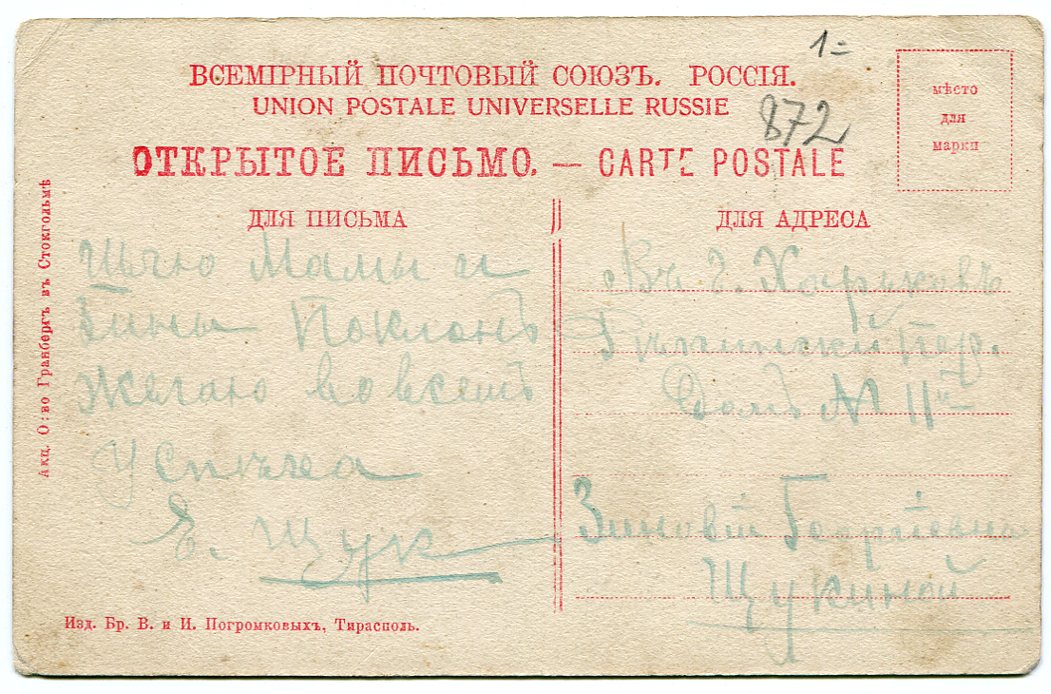 1=
ВСЕМІРНЫЙ ПОЧТОВЫЙ СОЮЗЪ. РОССІЯ.
UNION POSTALE UNIVERSELLE RUSSIE
872
ОТКРЫТОЕ ПИСЬМО. — CARTE POSTALE
мѣсто
для
марки
ДЛЯ ПИСЬМА
Мамы и
Поклонъ
Желаю во всемъ
Успѣха
Е. Щук
ДЛЯ АДРЕСА
Въ г. Харьковъ
пер.
Домъ № 11й
Зиновій
Щукиной
Изд. Бр. В. и И. Погромковыхъ, Тирасполь.
Акц. О:во Гранбергъ въ Стокгольмѣ